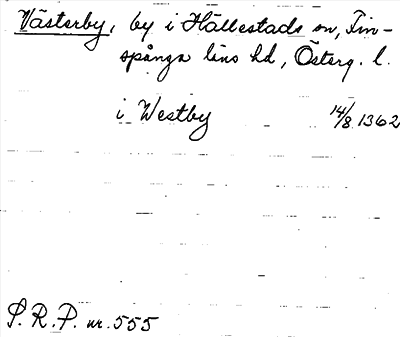 Västerby, by i Hällestads sn, Fin-
spånga läns hd, Österg. l.
i Westby 14/8 1362
S.R.P. nr. 555